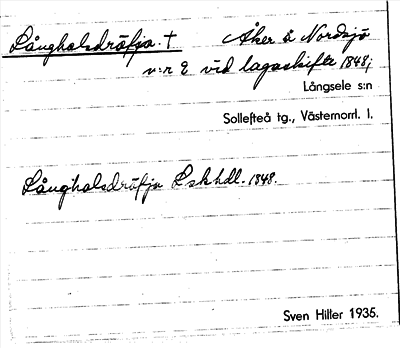 Långhalsdröfja. † Åker å Nordsjö
n:r 2 vid lagaskifte 1848;
Långsele s:n
Sollefteå tg., Västernorrl. l.
Långhalsdröfja Lskhdl. 1848.
Sven Hiller 1935.